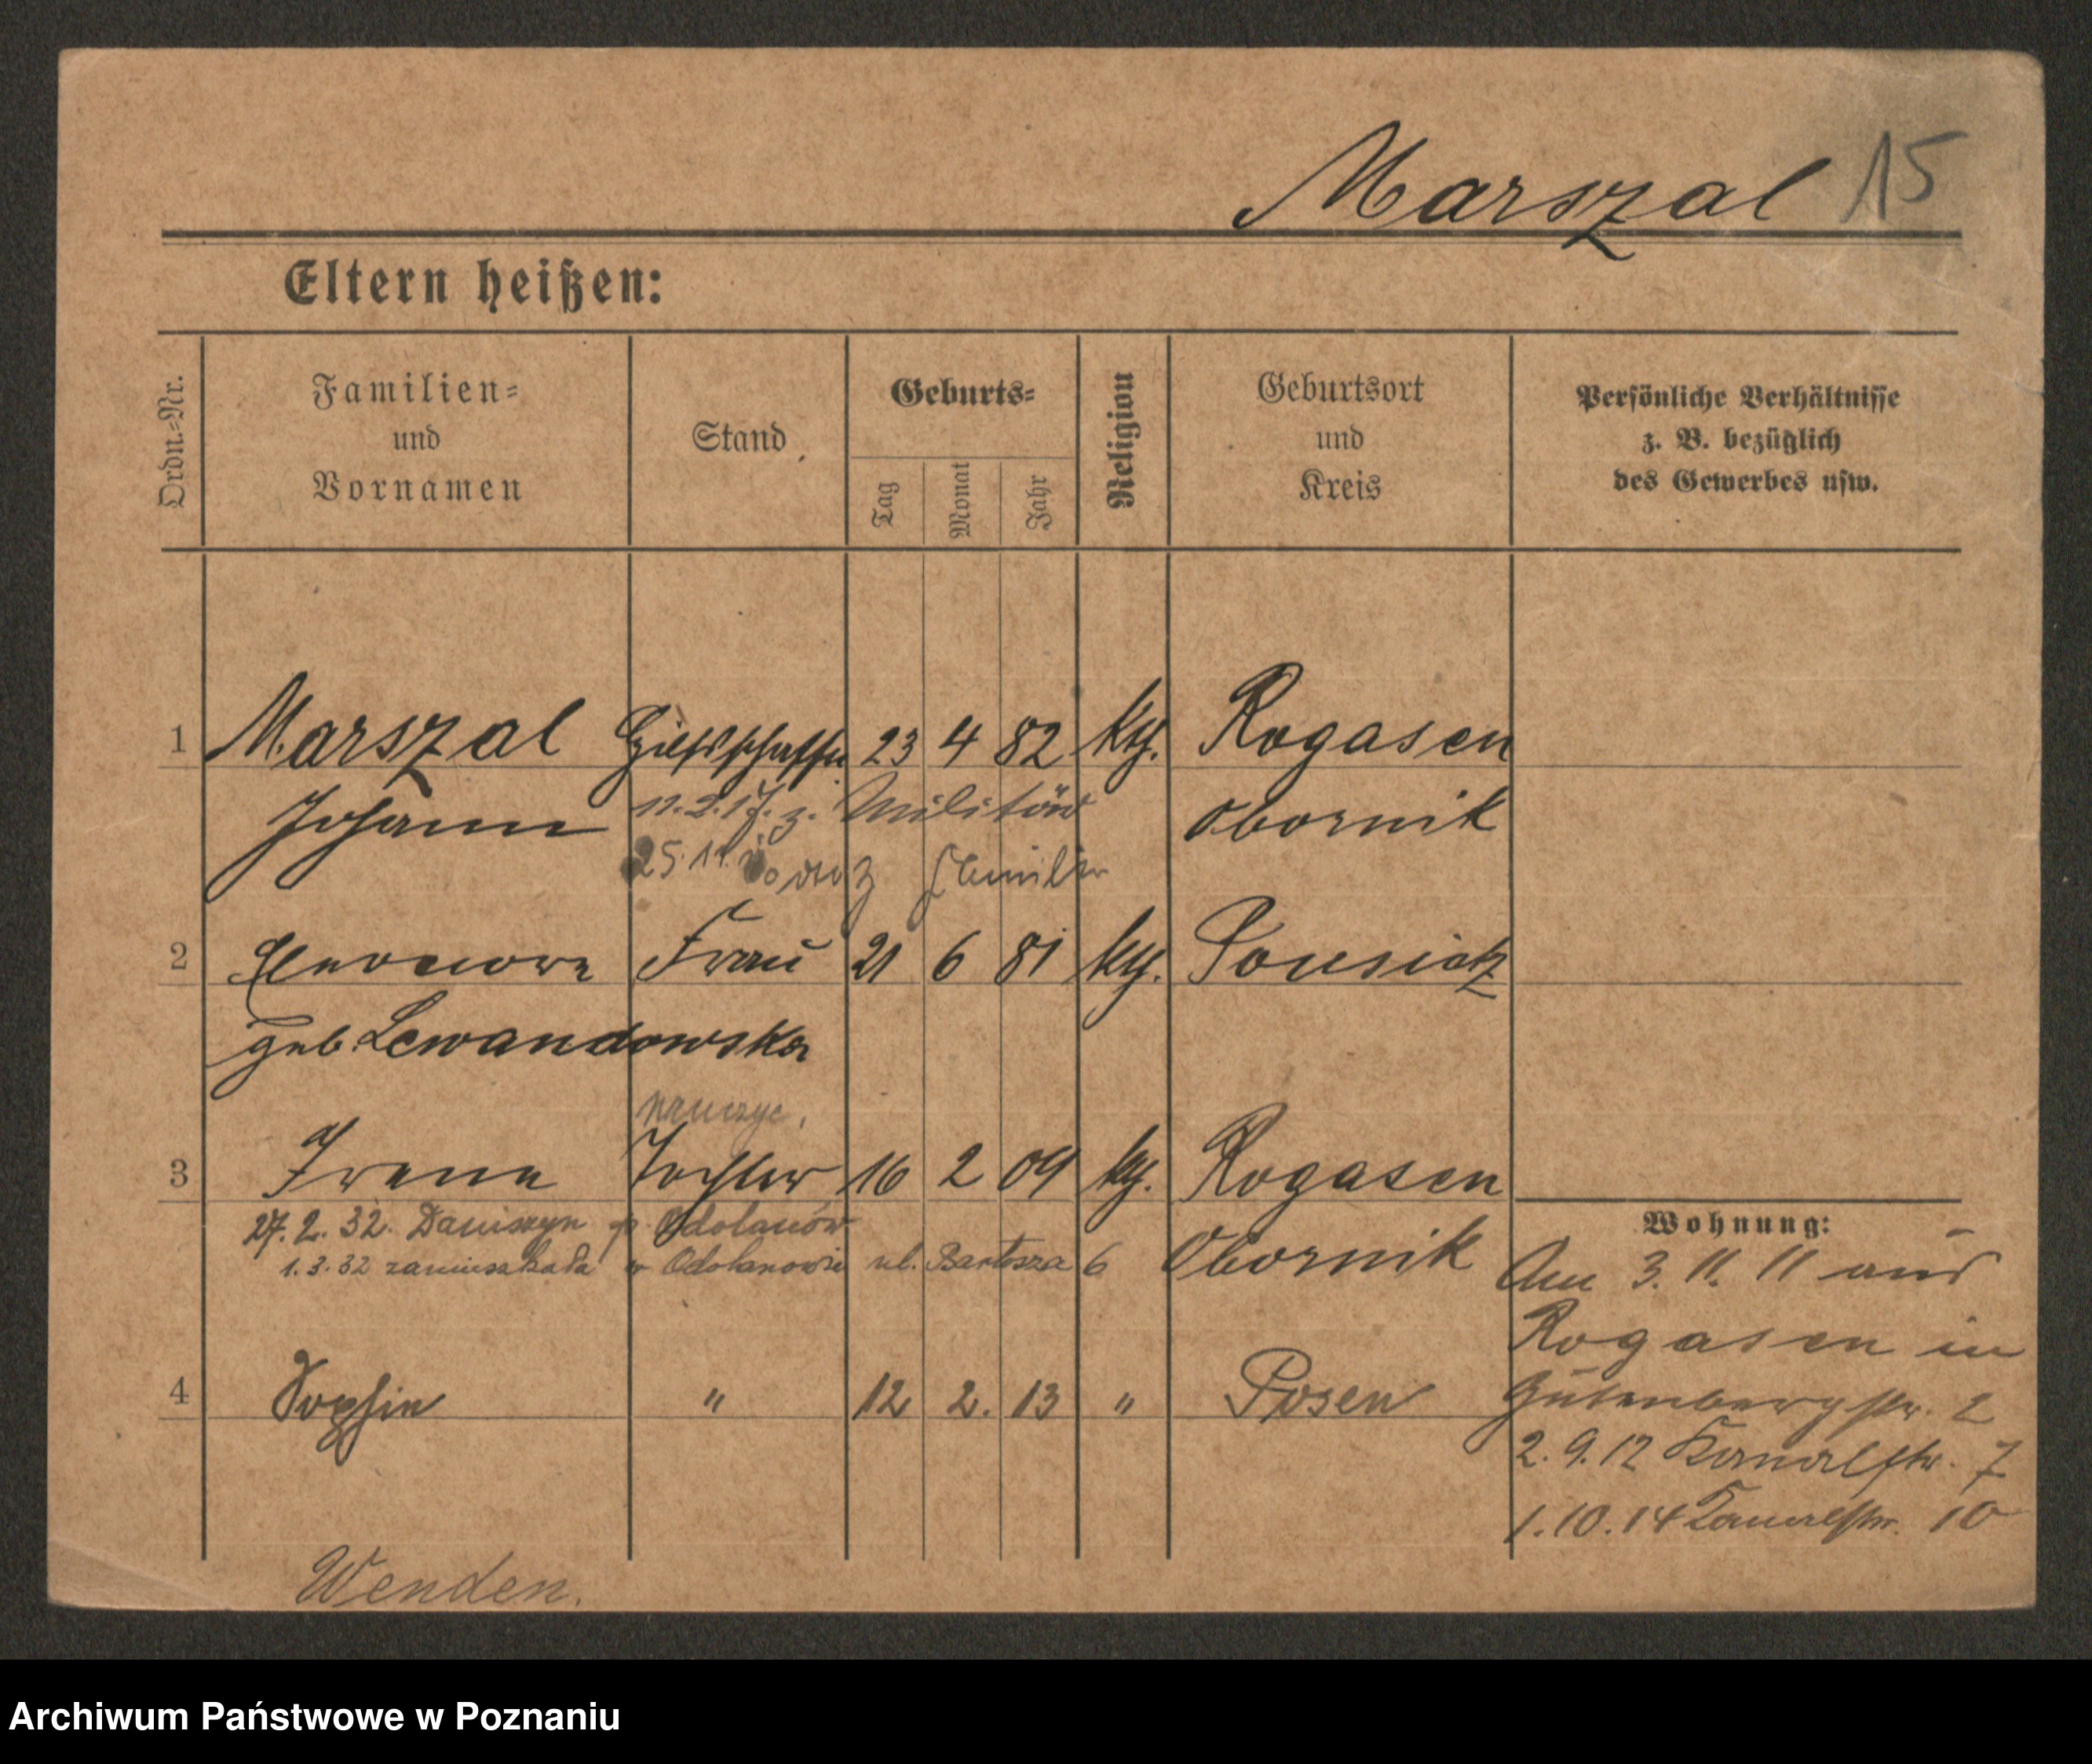 Marszal 15
Eltern heißen:
Ordn.-Nr.
Familien-
und
Vornamen
Stand
Geburts-
Tag
Monat
Jahr
Religion
Geburtsort
und
Kreis
Persönliche Verhältnisse
z. B. bezüglich
des Gewerbes usw.
1 Marszal Hilfsschaffn 23 4 82 kth. Rogasen
Johann 11.2.17. z. Militär Obornik
25.11. z Familie
2 Eleonore Frau 21 6 81 kth.
geb. Lewandowska
nauczyc.
3 Irene Tochter 16 2 09 kth. Rogasen
27.2.32. Daniszyn p. Odolanów Obornik
1.3.32 zamieszkała w Odolanowie ul. Bartosza 6
4 Sophie " 12 2. 13 " Posen
Wohnung:
Am 3.11.11 aus
Rogasen in
Gutenbergstr. 2
2.9.12 Kanalstr. 7
1.10.14 Kanalstr. 10
Wenden.
Archiwum Państwowe w Poznaniu